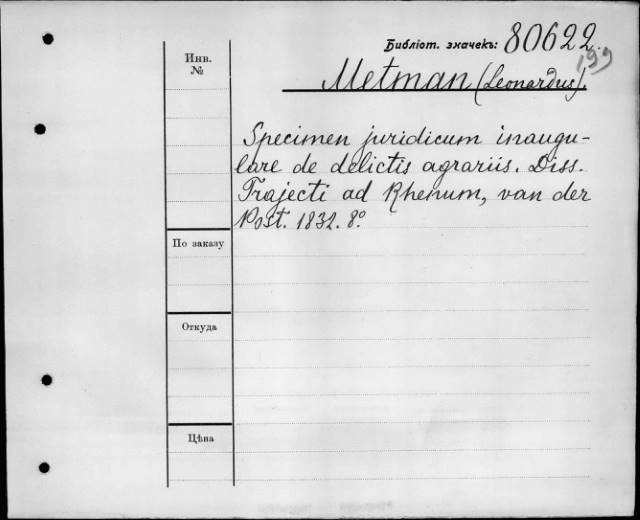 Библіот. значекъ: 80622.
199
Инв.
№
Metman (Leonardus).
Specimen juridicum inaugu-
lare de delictis agrariis. Diss.
Trajecti ad Rhenum, van der
Post. 1832. 8º
По заказу
Откуда
Цѣна